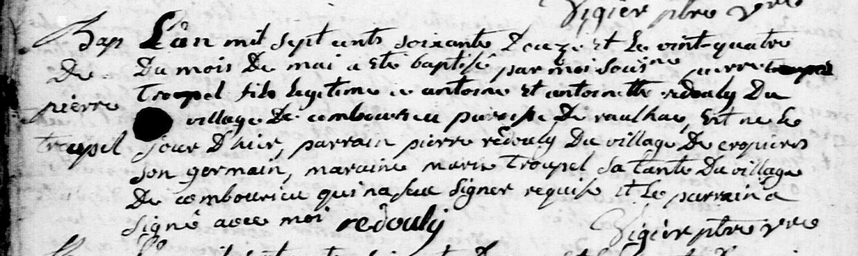 Vigier ptre vre
Bap L'an mil sept cents soixante douze et le vint-quatre
De Du mois De mai a ete baptisé par moi sousné pierre
pierre troupel fils legitime a antoine et antoinette redouly Du
village De combourieu paroisse De raulhac, Est né le
troupel jour D'hier, parrain pierre redouly Du village De cropieres
son germain, maraine marie troupel sa tante Du village
De combourieu qui na seu signer requise et le parrain a
signé avec moi redouly
Vigier ptre vre